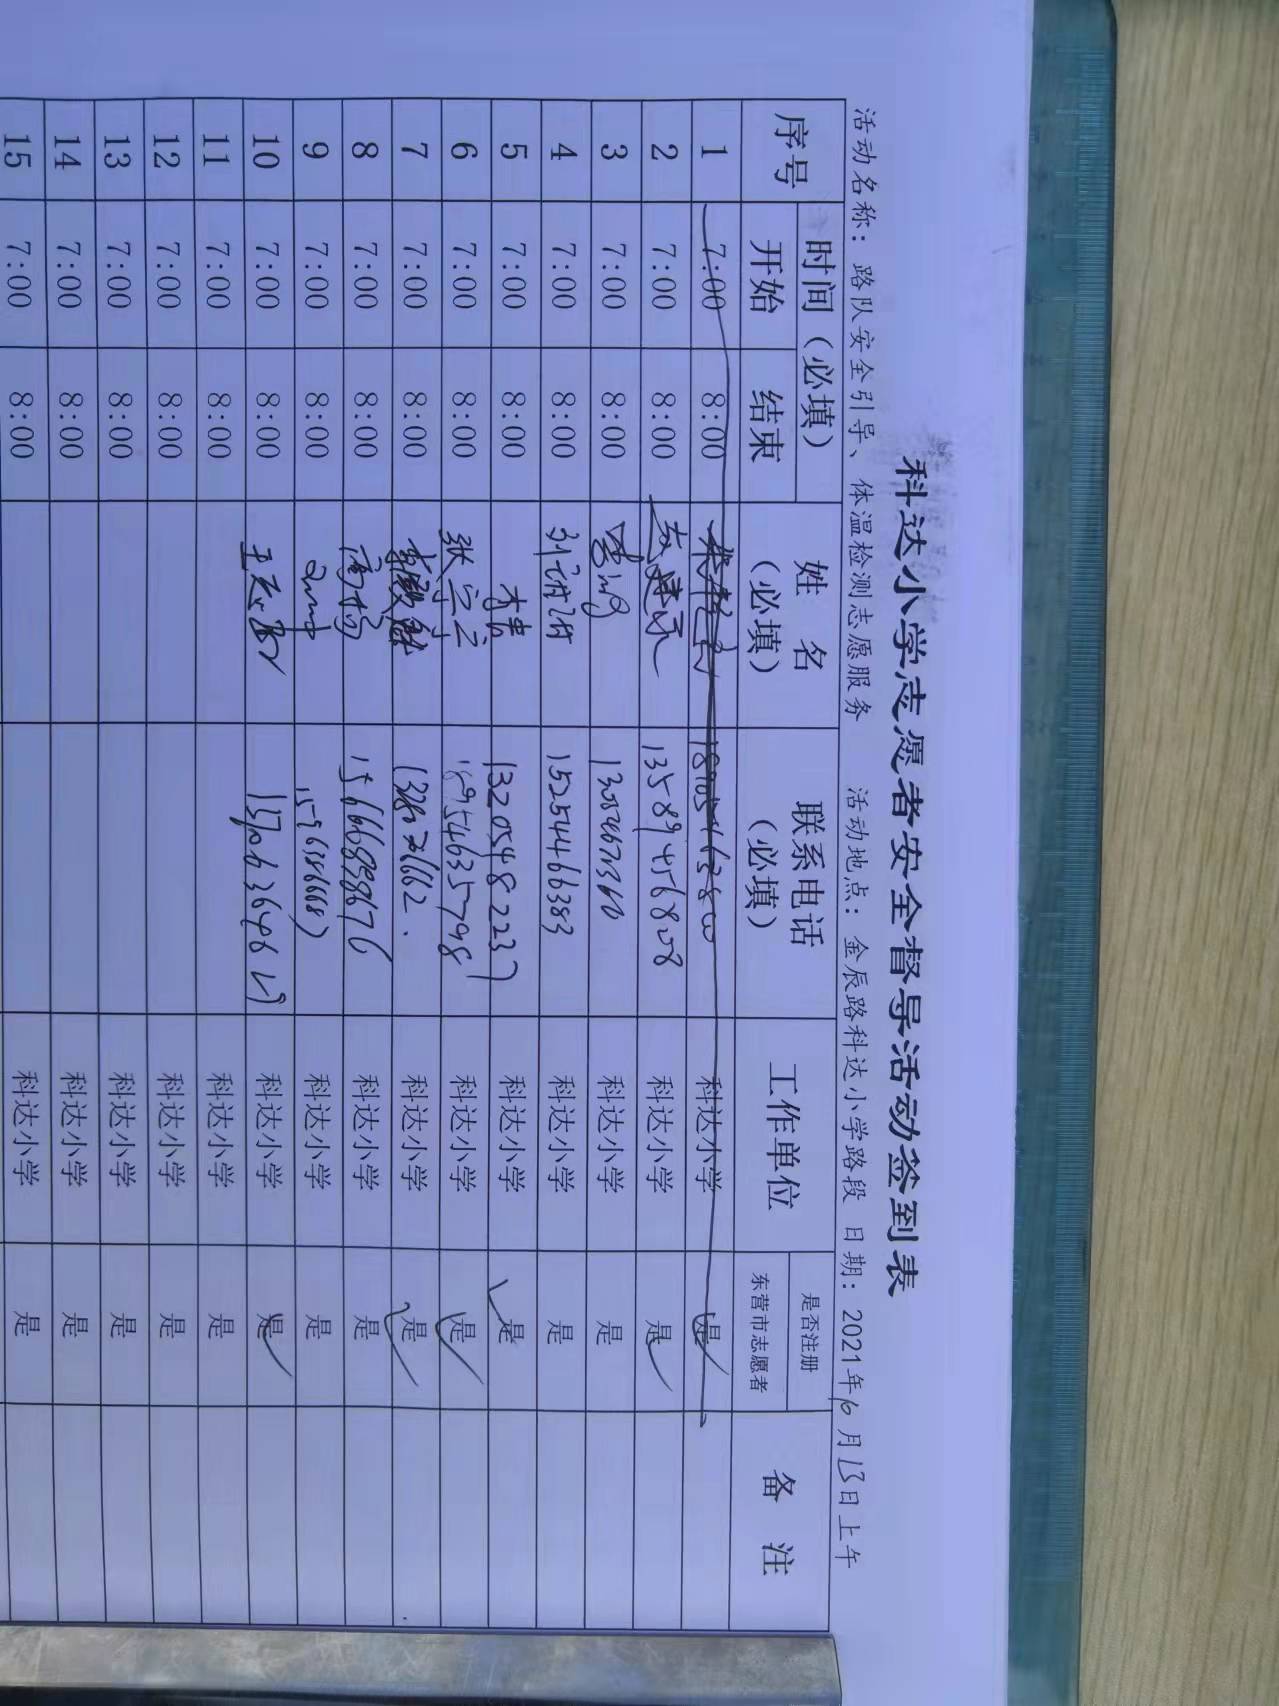 科达小学志愿者安全督导活动签到表
活动名称：路队安全引导、体温检测志愿服务 活动地点：金辰路科达小学路段 日期：2021年10月13日上午
序号 时间（必填） 姓名（必填） 联系电话（必填） 工作单位 是否注册东营市志愿者 备注
开始 结束
1 7:00 8:00 科达小学 是
2 7:00 8:00 13589456808 科达小学 是
3 7:00 8:00 科达小学 是
4 7:00 8:00 15254466383 科达小学 是
5 7:00 8:00 13205482237 科达小学 是
6 7:00 8:00 张宁宁 18954635798 科达小学 是
7 7:00 8:00 科达小学 是
8 7:00 8:00 高杨 15666898676 科达小学 是
9 7:00 8:00 科达小学 是
10 7:00 8:00 科达小学 是
11 7:00 8:00 科达小学 是
12 7:00 8:00 科达小学 是
13 7:00 8:00 科达小学 是
14 7:00 8:00 科达小学 是
15 7:00 8:00 科达小学 是